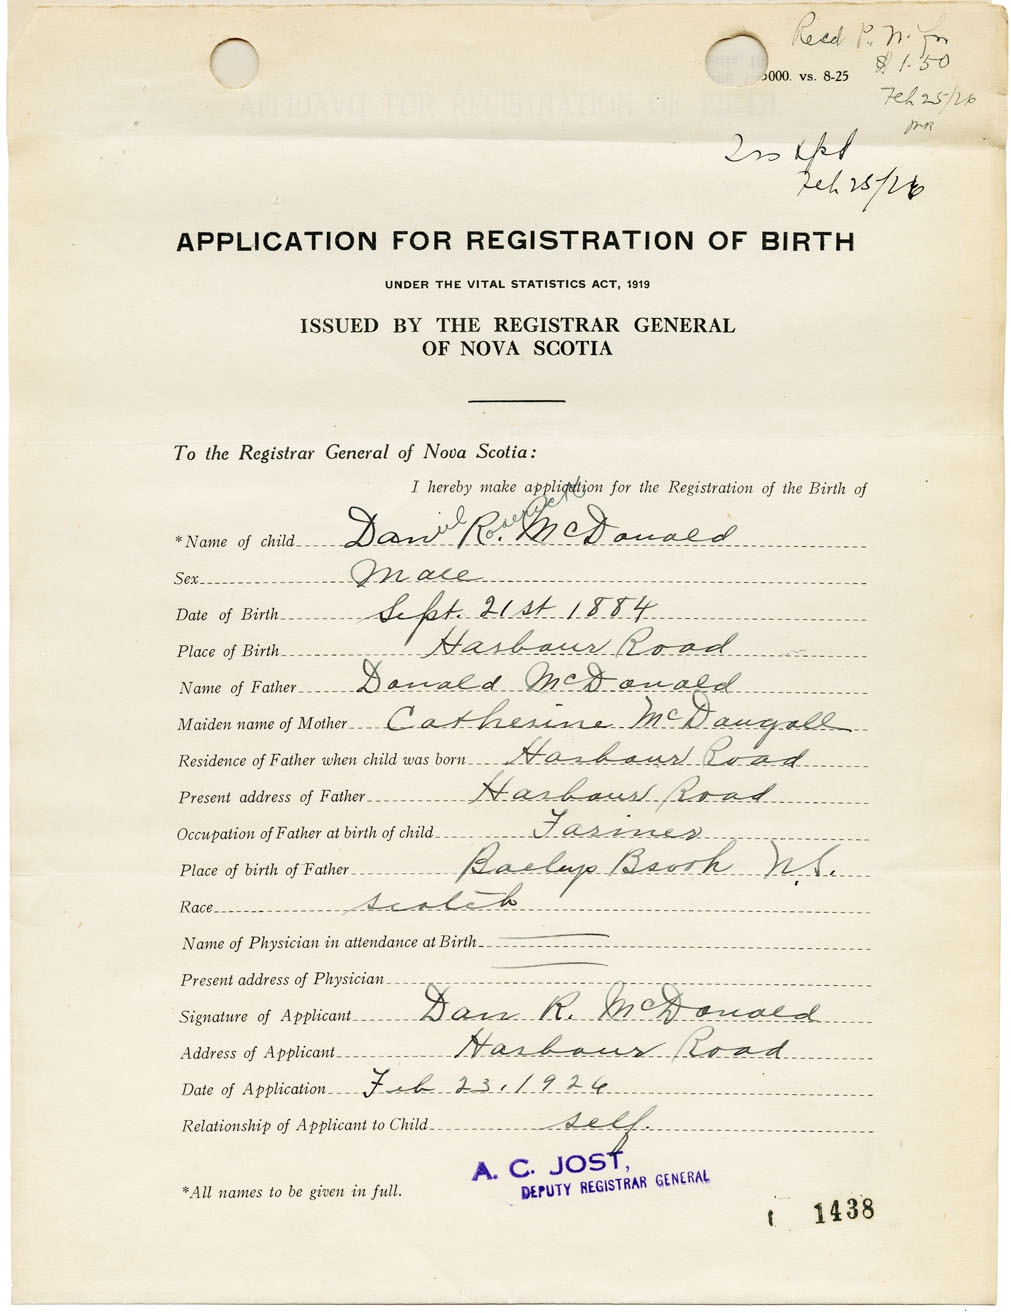 Recd P. N. for
$1.50
5000. vs. 8-25
Feb 25/26
MR
Feb 25/26
APPLICATION FOR REGISTRATION OF BIRTH
UNDER THE VITAL STATISTICS ACT, 1919
ISSUED BY THE REGISTRAR GENERAL
OF NOVA SCOTIA
To the Registrar General of Nova Scotia:
I hereby make application for the Registration of the Birth of
*Name of child Daniel R. Roserick McDonald
Sex Male
Date of Birth Sept. 21st 1884
Place of Birth Harbour Road
Name of Father Donald McDonald
Maiden name of Mother Catherine McDougall
Residence of Father when child was born Harbour Road
Present address of Father Harbour Road
Occupation of Father at birth of child Farmer
Place of birth of Father Baelys Brook N.S.
Race Scotch
Name of Physician in attendance at Birth
Present address of Physician
Signature of Applicant Dan R. McDonald
Address of Applicant Harbour Road
Date of Application Feb 23, 1926
Relationship of Applicant to Child self.
A. C. JOST,
DEPUTY REGISTRAR GENERAL
*All names to be given in full.
1438